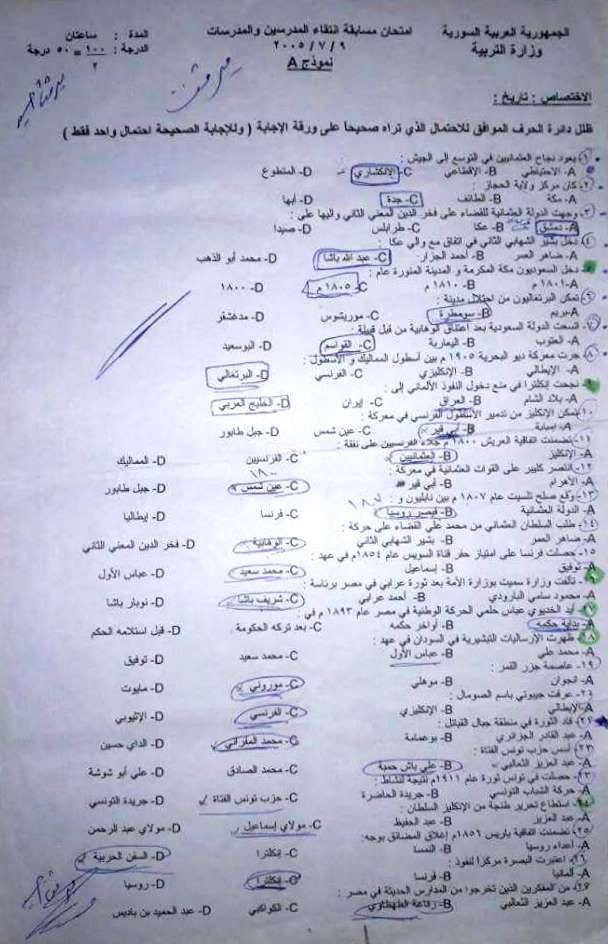 الجمهورية العربية السورية
وزارة التربية
امتحان مسابقة انتقاء المدرسين والمدرسات
٢٠٠٥/٧/٩
نموذج A
المدة : ساعتان
الدرجة : ١٠٠/٢ = ٥٠ درجة
الاختصاص : تاريخ :
ظلل دائرة الحرف الموافق للاحتمال الذي تراه صحيحاً على ورقة الإجابة ( وللإجابة الصحيحة احتمال واحد فقط )
١- يعود نجاح العثمانيين في التوسع إلى الجيش :
A- الاحتياطي B- الإقطاعي C- الانكشاري D- المتطوع
٢- كان مركز ولاية الحجاز :
A- مكة B- الطائف C- جدة D- أبها
٣- وجهت الدولة العثمانية للقضاء على فخر الدين المعني الثاني واليها على :
A- دمشق B- عكا C- طرابلس D- صيدا
٤- دخل بشير الشهابي الثاني في اتفاق مع والي عكا :
A- ضاهر العمر B- أحمد الجزار C- عبد الله باشا D- محمد أبو الذهب
٥- دخل السعوديون مكة المكرمة و المدينة المنورة عام :
A- ١٨٠١ م B- ١٨١٠ م C- ١٨٠٥ م D- ١٨٠٠
٦- تمكن البرتغاليون من احتلال مدينة :
A- بريم B- سومطرة C- موريشوس D- مدغشقر
٧- اتسعت الدولة السعودية بعد اعتناق الوهابية من قبل قبيلة :
A- العتوب B- اليعاربة C- القواسم D- البوسعيد
٨- جرت معركة ديو البحرية ١٩٠٥ م بين أسطول المماليك و الأسطول :
A- الإيطالي B- الإنكليزي C- الفرنسي D- البرتغالي
٩- نجحت إنكلترا في منع دخول النفوذ الألماني إلى :
A- بلاد الشام B- العراق C- إيران D- الخليج العربي
١٠- تمكن الإنكليز من تدمير الأسطول الفرنسي في معركة :
A- إمبابة B- أبي قير C- عين شمس D- جبل طابور
١١- تضمنت اتفاقية العريش ١٨٠٠ م جلاء الفرنسيين على نفقة :
A- الإنكليز B- العثمانيين C- الفرنسيين D- المماليك
١٢- انتصر كليبر على القوات العثمانية في معركة : ١٨٠٠
A- الأهرام B- أبي قير C- عين شمس D- جبل طابور
١٣- وقع صلح تلسيت عام ١٨٠٧ م بين نابليون و : ١٨٠٧
A- الدولة العثمانية B- قيصر روسيا C- فرنسا D- إيطاليا
١٤- طلب السلطان العثماني من محمد علي القضاء على حركة :
A- ضاهر العمر B- بشير الشهابي الثاني C- الوهابية D- فخر الدين المعني الثاني
١٥- حصلت فرنسا على امتياز حفر قناة السويس عام ١٨٥٤م في عهد :
A- توفيق B- إسماعيل C- محمد سعيد D- عباس الأول
- تألفت وزارة سميت بوزارة الأمة بعد ثورة عرابي في مصر برئاسة :
A- محمود سامي البارودي B- أحمد عرابي C- شريف باشا D- نوبار باشا
١٧- أيد الخديوي عباس حلمي الحركة الوطنية في مصر عام ١٨٩٣ م في :
A- بداية حكمه B- أواخر حكمه C- بعد تركه الحكومة D- قبل استلامه الحكم
١٨- ظهرت الإرساليات التبشيرية في السودان في عهد :
A- محمد علي B- عباس الأول C- محمد سعيد D- توفيق
١٩- عاصمة جزر القمر :
A- انجوان B- موهلي C- موروني D- مايوت
٢٠- عرفت جيبوتي باسم الصومال :
A- الإيطالي B- الإنكليزي C- الفرنسي D- الإثيوبي
٢١- قاد الثورة في منطقة جبال القبائل :
A- عبد القادر الجزائري B- بوعمامة C- محمد المقراني D- الداي حسين
٢٢- أسس حزب تونس الفتاة :
A- عبد العزيز الثعالبي B- علي باش حمبة C- محمد الصادق D- علي أبو شوشة
٢٣- حصلت في تونس ثورة عام ١٩١١م نتيجة لنشاط :
A- حركة الشباب التونسي B- جريدة الحاضرة C- حزب تونس الفتاة D- جريدة التونسي
٢٤- استطاع تحرير طنجة من الإنكليز السلطان :
A- عبد العزيز B- عبد الحفيظ C- مولاي إسماعيل D- مولاي عبد الرحمن
٢٥- تضمنت اتفاقية باريس ١٨٥٦م إغلاق المضائق بوجه:
A- أعداء روسيا B- النمسا C- إنكلترا D- السفن الحربية
٢٦- اعتبرت البصرة مركزاً لنفوذ :
A- ألمانيا B- فرنسا C- إنكلترا D- روسيا
٢٧- من المفكرين الذين تخرجوا من المدارس الحديثة في مصر :
A- عبد العزيز الثعالبي B- رفاعة الطهطاوي C- الكواكبي D- عبد الحميد بن باديس